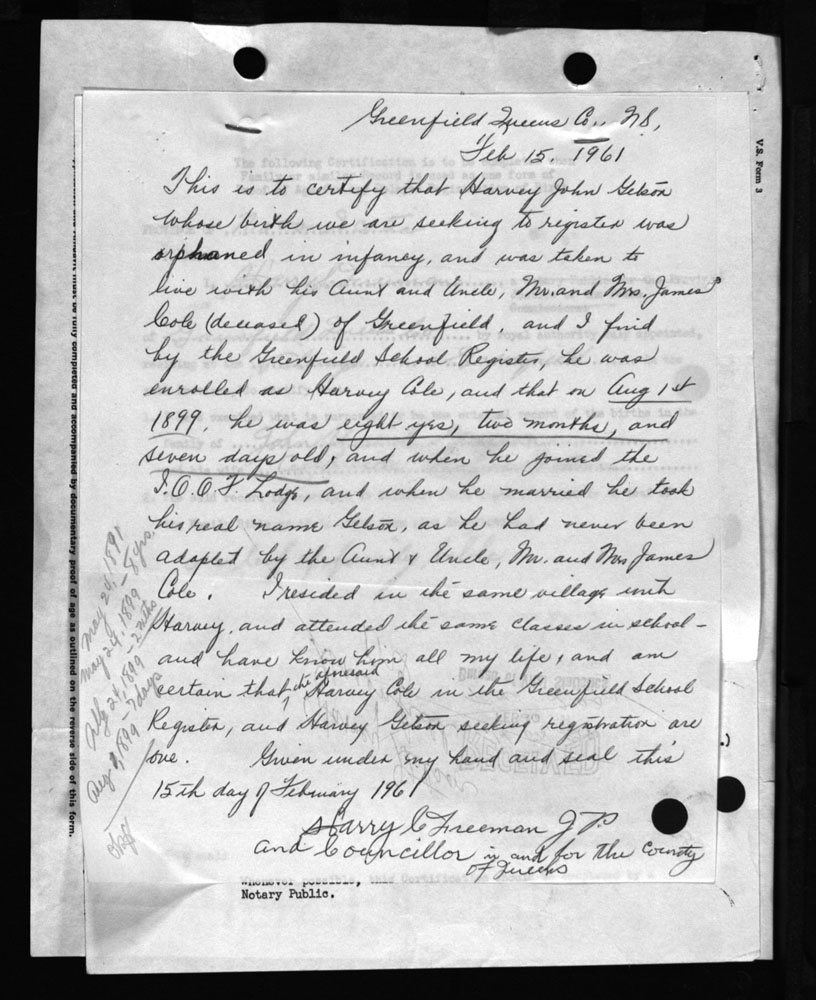 Greenfield Queens Co., N.S.,
Feb 15, 1961
This is to certify that Harvey John Getson
whose birth we are seeking to register was
orphaned in infancy, and was taken to
live with his Aunt and Uncle, Mr. and Mrs. James
Cole (deceased) of Greenfield, and I find
by the Greenfield School Register, he was
enrolled as Harvey Cole, and that on Aug 1st
1899, he was eight yrs, two months, and
seven days old, and when he joined the
I.O.O.F. Lodge, and when he married he took
his real name Getson, as he had never been
adopted by the Aunt & Uncle, Mr. and Mrs James
Cole. I resided in the same village with
Harvey, and attended the same classes in school -
and have know him all my life, and am
certain that the aforesaid Harvey Cole in the Greenfield School
Register, and Harvey Getson seeking registration are
one. Given under my hand and seal this
15th day of February 1961
Harry C Freeman J.P.
and Councillor in and for the County
of Queens
May 24, 1891
May 24, 1899 - 8 yrs.
July 24, 1899 - 2 mths
Aug 1, 1899 - 7 days
V.S. Form 3
must be fully completed and accompanied by documentary proof of age as outlined on the reverse side of this form.
Whenever possible, this
Notary Public.